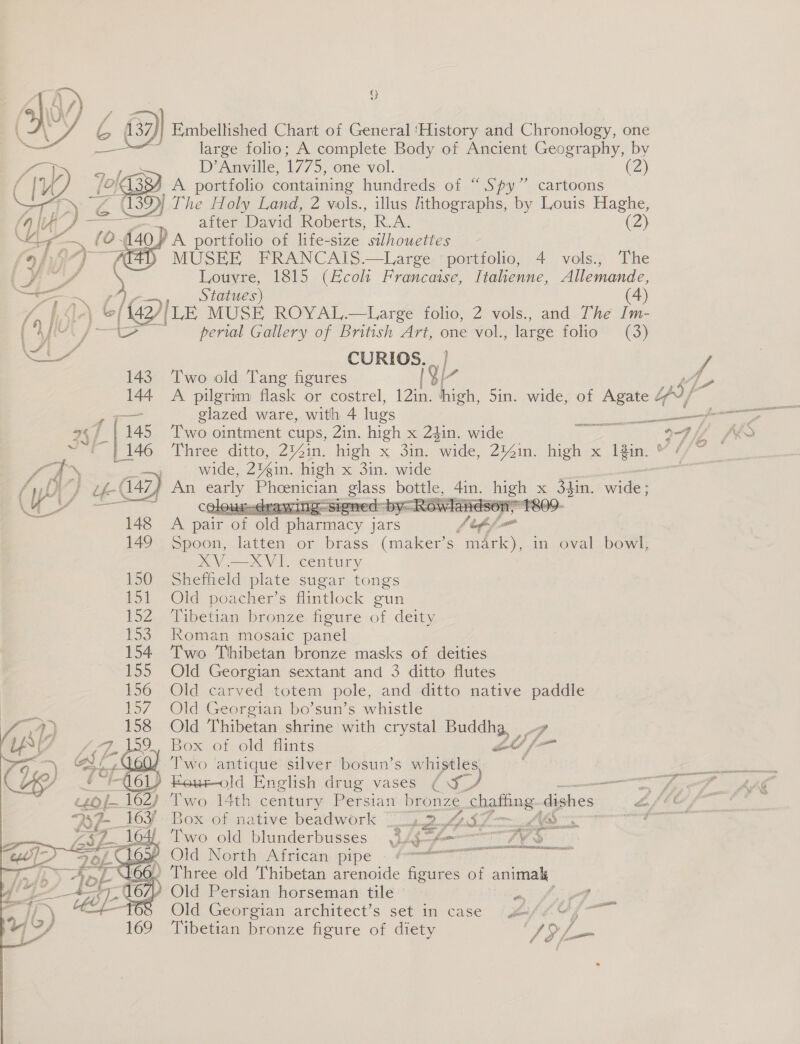 9
137 Embellished Chart of General History and Chronology, one
large folio; A complete Body of Ancient Geography, by
D'Anville, 1775, one vol. (2)
138 A portfolio containing hundreds of "Spy" cartoons
139 The Holy Land, 2 vols., illus lithographs, by Louis Haghe,
after David Roberts, R.A. (2)
140 A portfolio of life-size silhouettes
141 MUSEE FRANCAIS.—Large portfolio, 4 vols., The
Louvre, 1815 (Ecoli Francaise, Italienne, Allemande,
Statues) (4)
142 LE MUSE ROYAL.—Large folio, 2 vols., and The Im-
perial Gallery of British Art, one vol., large folio (3)
CURIOS.
143 Two old Tang figures
144 A pilgrim flask or costrel, 12in. high, 5in. wide, of Agate
glazed ware, with 4 lugs
145 Two ointment cups, 2in. high x 2¾in. wide
146 Three ditto, 2½in. high x 3in. wide, 2½in. high x 1¾in.
wide, 2⅛in. high x 3in. wide
147 An early Phœnician glass bottle, 4in. high x 3¾in. wide;
colour drawing signed by Rowlandson, 1809
148 A pair of old pharmacy jars
149 Spoon, latten or brass (maker's mark), in oval bowl,
XV.—XVI. century
150 Sheffield plate sugar tongs
151 Old poacher's flintlock gun
152 Tibetian bronze figure of deity
153 Roman mosaic panel
154 Two Thibetan bronze masks of deities
155 Old Georgian sextant and 3 ditto flutes
156 Old carved totem pole, and ditto native paddle
157 Old Georgian bo'sun's whistle
158 Old Thibetan shrine with crystal Buddha
159 Box of old flints
160 Two antique silver bosun's whistles
161 Four old English drug vases (5)
162 Two 14th century Persian bronze chaffing dishes
163 Box of native beadwork
164 Two old blunderbusses
165 Old North African pipe
166 Three old Thibetan arenoide figures of animals
167 Old Persian horseman tile
168 Old Georgian architect's set in case
169 Tibetian bronze figure of diety